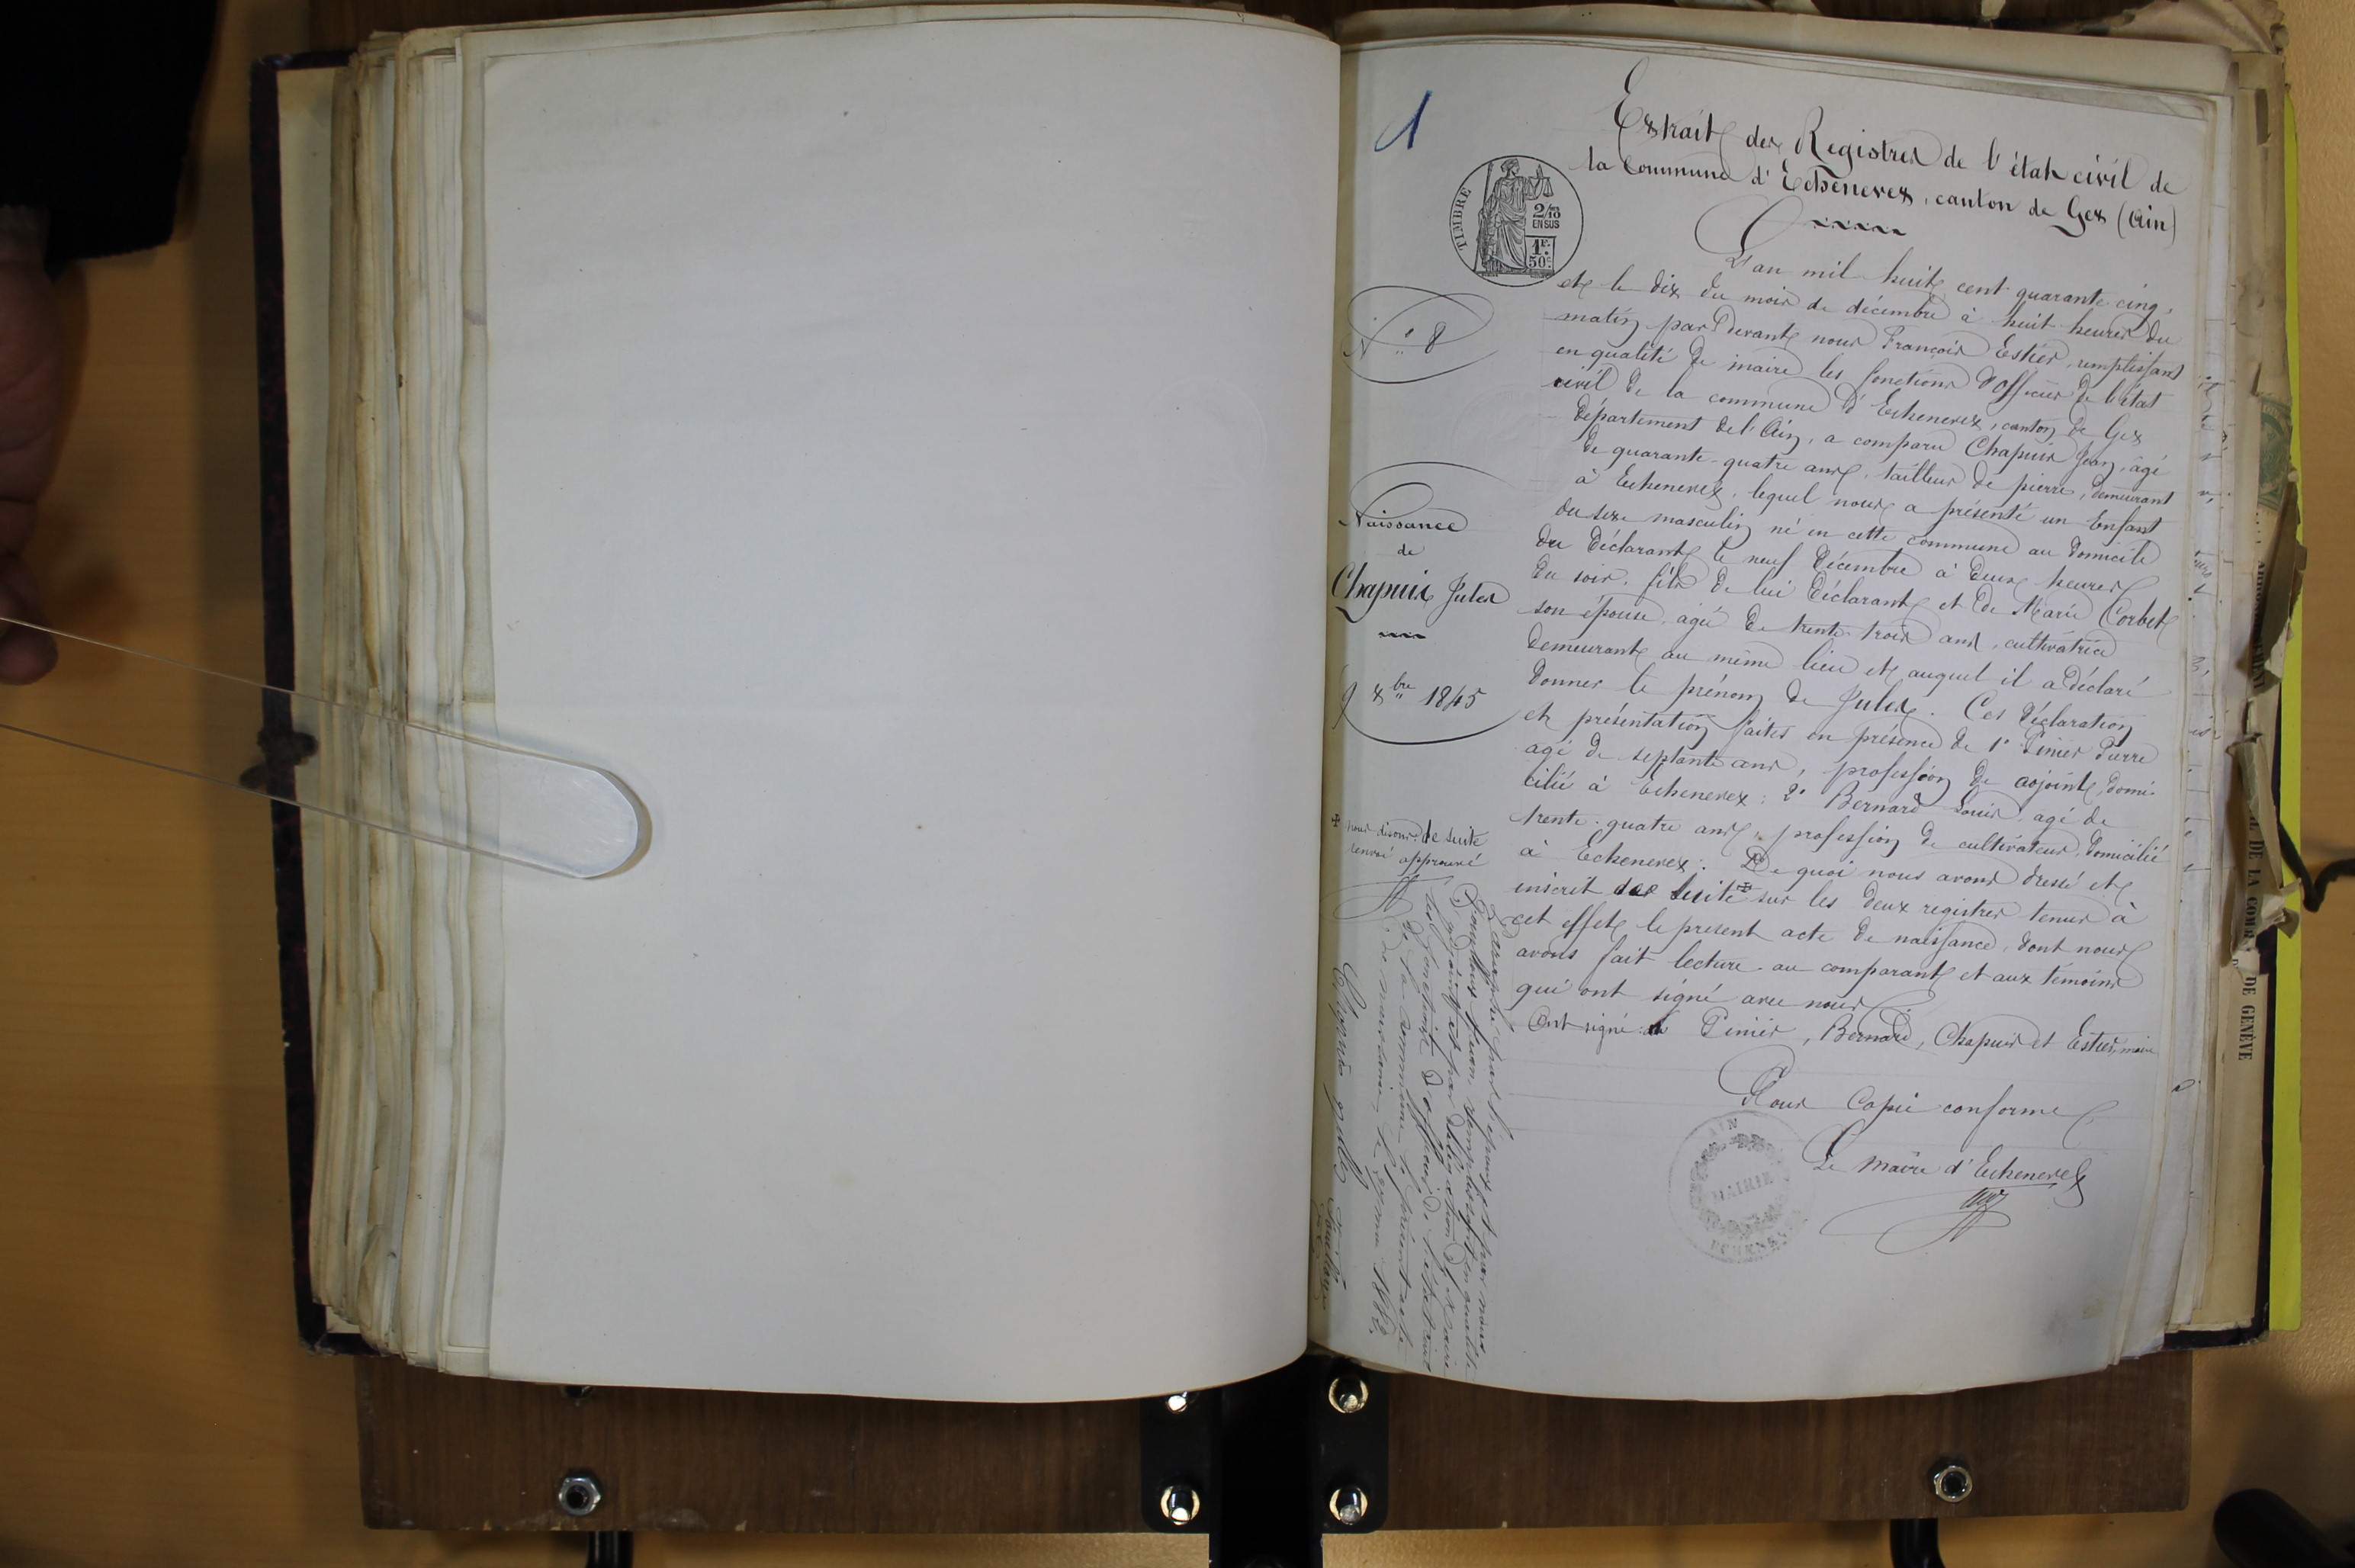 1
Extrait des Registres de l'état civil de
la Commune d'Echenevex, canton de Gex (Ain)
TIMBRE
2/10
EN SUS
1F.
50c.
L'an mil huit cent quarante cinq,
et le dix du mois de décembre à huit heures du
matin par devant nous François Estier, remplissant
en qualité de maire les fonctions d'Officier de l'état
civil de la commune d'Echenevex, canton de Gex
département de l'Ain, a comparu Chapuis Jean, âgé
de quarante-quatre ans, tailleur de pierre, demeurant
à Echenevex, lequel nous a présenté un Enfant
du sexe masculin né en cette commune au domicile
du déclarant le neuf Décembre à deux heures
du soir, fils de lui déclarant et de Marie Corbet
son épouse, agée de trente-trois ans, cultivatrice
demeurant au même lieu et auquel il a déclaré
donner le prénom de Jules. Ces déclaration
et présentation faites en présence de 1° Pinier Pierre
agé de septante ans, profession de adjoint, domi-
cilié à Echenevex; 2° Bernard Louis, agé de
trente-quatre ans, profession de cultivateur, domicilié
à Echenevex. De quoi nous avons dressé et
inscrit de suite sur les deux registres tenus à
cet effet le present acte de naissance, dont nous
avons fait lecture au comparant et aux témoins
qui ont signé avec nous
Ont signé: Pinier, Bernard, Chapuis et Estier, maire
Pour Copie conforme
Le Maire d'Echenevex
N° 8
Naissance
de
Chapuis Jules
9 xbre 1845
nous disons: de suite
renvoi approuvé
MAIRIE
et par nous
remplissant en qualité
les fonctions d'officier de l'état civil
de la commune
DE LA COUR
DE GENÈVE